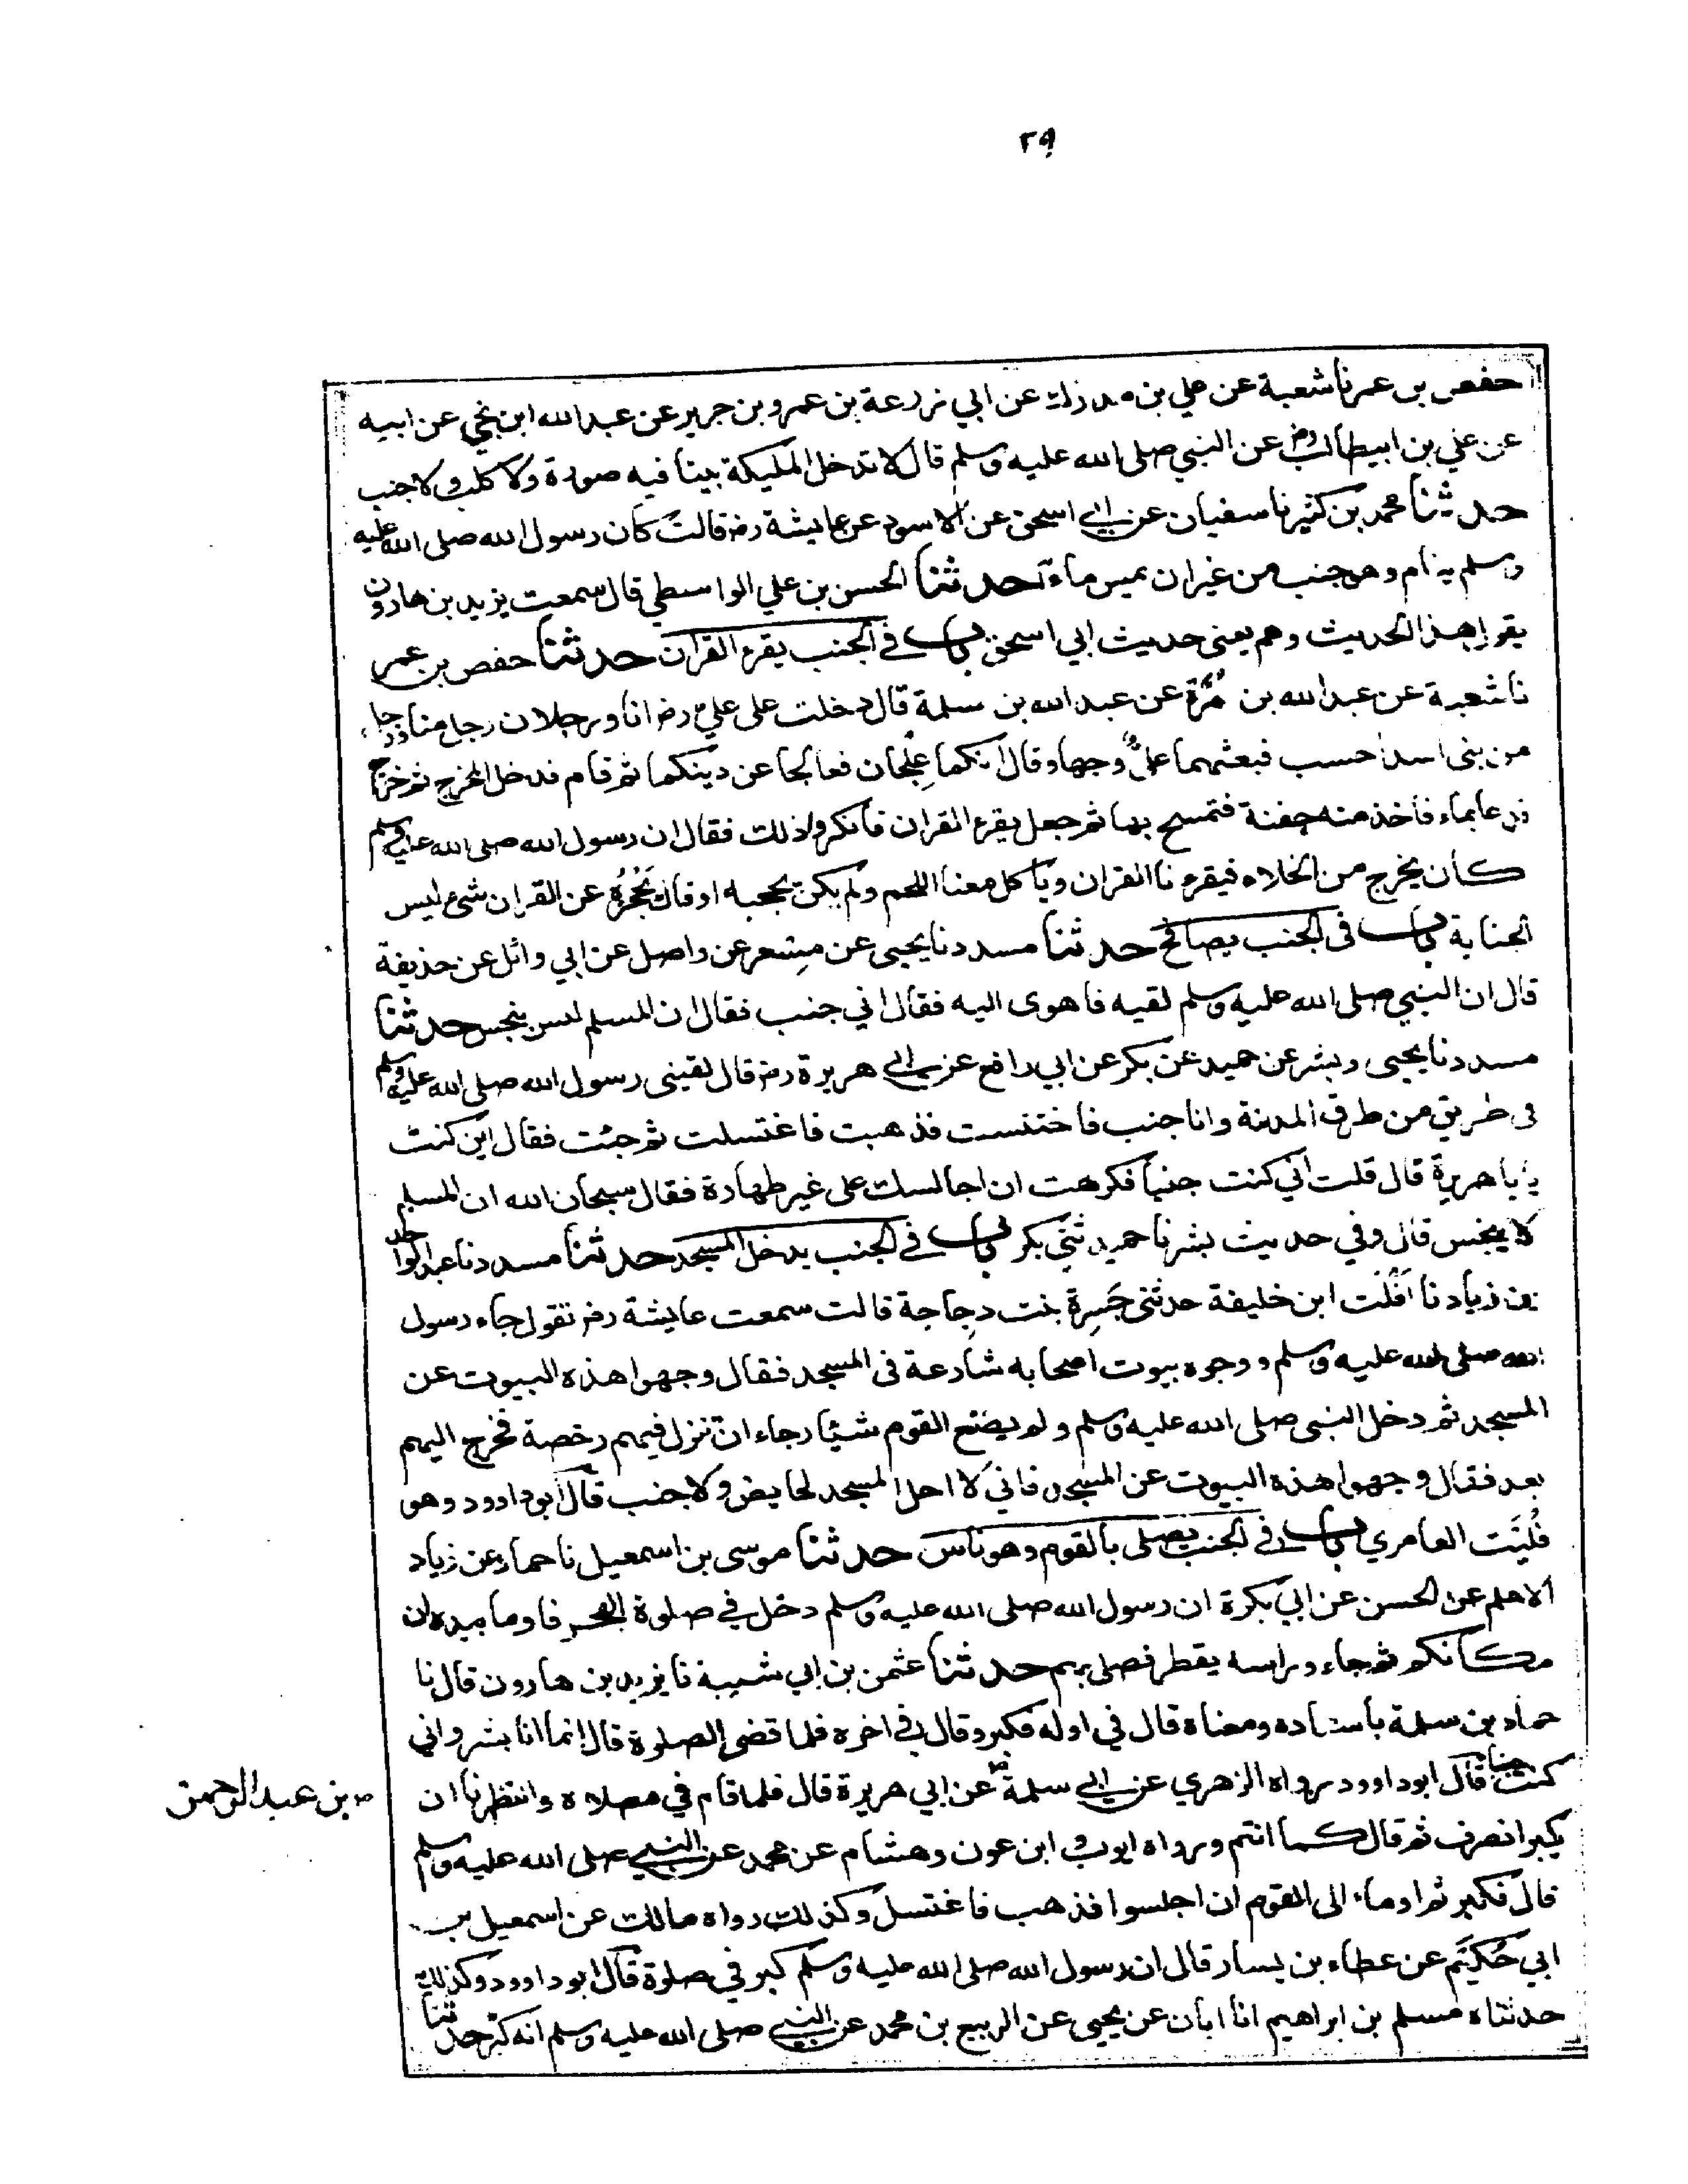 ٢٩
حفص بن عمر نا شعبة عن علي بن مدرك عن ابي زرعة بن عمرو بن جرير عن عبد الله ابن نجي عن ابيه
عن علي بن ابيطالب رض عن النبي صلى الله عليه وسلم قال لا تدخل المليكة بيتا فيه صورة ولا كلب ولا جنب
حدثنا محمد بن كثير نا سفيان عن ابي اسحق عن الاسود عن عايشة رض قالت كان رسول الله صلى الله عليه
وسلم ينام وهو جنب من غير ان يمس ماء حدثنا الحسن بن علي الواسطي قال سمعت يزيد بن هارون
يقول هذا الحديث وهم يعنى حديث ابي اسحق باب في الجنب يقرء القران حدثنا حفص بن عمر
نا شعبة عن عبد الله بن مرة عن عبد الله بن سلمة قال دخلت على علي رض انا ورجلان رجل منا ورجل
من بنى اسد احسب فبعثهما علي وجها وقال انكما علجان فعالجا عن دينكما ثم قام فدخل المخرج ثم خرج
فدعا بماء فاخذ منه حفنة فتمسح بها ثم جعل يقرء القران فانكروا ذلك فقال ان رسول الله صلى الله عليه وسلم
كان يخرج من الخلاء فيقرء نا القران وياكل معنا اللحم ولم يكن يحجبه او قال يحجزه عن القران شئ ليس
الجنابة باب فى الجنب يصافح حدثنا مسدد نا يحيى عن مسعر عن واصل عن ابي وائل عن حذيفة
قال ان النبي صلى الله عليه وسلم لقيه فاهوى اليه فقال اني جنب فقال ان المسلم ليس بنجس حدثنا
مسدد نا يحيى وبشر عن حميد عن بكر عن ابي رافع عن ابي هريرة رض قال لقينى رسول الله صلى الله عليه وسلم
فى طريق من طرق المدينة وانا جنب فاختنست فذهبت فاغتسلت ثم جئت فقال اين كنت
يا با هريرة قال قلت اني كنت جنبا فكرهت ان اجالسك على غير طهارة فقال سبحان الله ان المسلم
لا ينجس قال وفي حديث بشر نا حميد ثنى بكر باب في الجنب يدخل المسجد حدثنا مسدد نا عبد الواحد
بن زياد نا افلت ابن خليفة حدثنى جسرة بنت دجاجة قالت سمعت عايشة رض تقول جاء رسول
الله صلى الله عليه وسلم ووجوه بيوت اصحابه شارعة فى المسجد فقال وجهوا هذه البيوت عن
المسجد ثم دخل النبى صلى الله عليه وسلم ولم يصنع القوم شيئا رجاء ان تنزل فيهم رخصة فخرج اليهم
بعد فقال وجهوا هذه البيوت عن المسجد فاني لا احل المسجد لحايض ولا جنب قال ابو داوود وهو
فليت العامري باب في الجنب يصلى بالقوم وهو ناس حدثنا موسى بن اسمعيل نا حماد عن زياد
الاعلم عن الحسن عن ابي بكرة ان رسول الله صلى الله عليه وسلم دخل في صلوة الفجر فاوما بيده ان
مكانكم ثم جاء وراسه يقطر فصلى بهم حدثنا عثمن بن ابي شيبة نا يزيد بن هارون قال نا
حماد بن سلمة باسناده ومعناه قال في اوله فكبر وقال في اخره فلما قضى الصلوة قال انما انا بشر واني
كنت جنبا قال ابو داوود رواه الزهري عن ابي سلمة عن ابي هريرة قال فلما قام في مصلاه وانتظرنا ان
بن عبد الرحمن
يكبر انصرف ثم قال كما انتم ورواه ايوب و ابن عون وهشام عن محمد عن النبي صلى الله عليه وسلم
قال فكبر ثم اوما الى القوم ان اجلسوا فذهب فاغتسل وكذلك رواه مالك عن اسمعيل بن
ابي حكيم عن عطاء بن يسار قال ان رسول الله صلى الله عليه وسلم كبر في صلوة قال ابو داوود وكذلك
حدثناه مسلم بن ابراهيم انا ابان عن يحيى عن الربيع بن محمد عن النبي صلى الله عليه وسلم انه كبر حدثنا